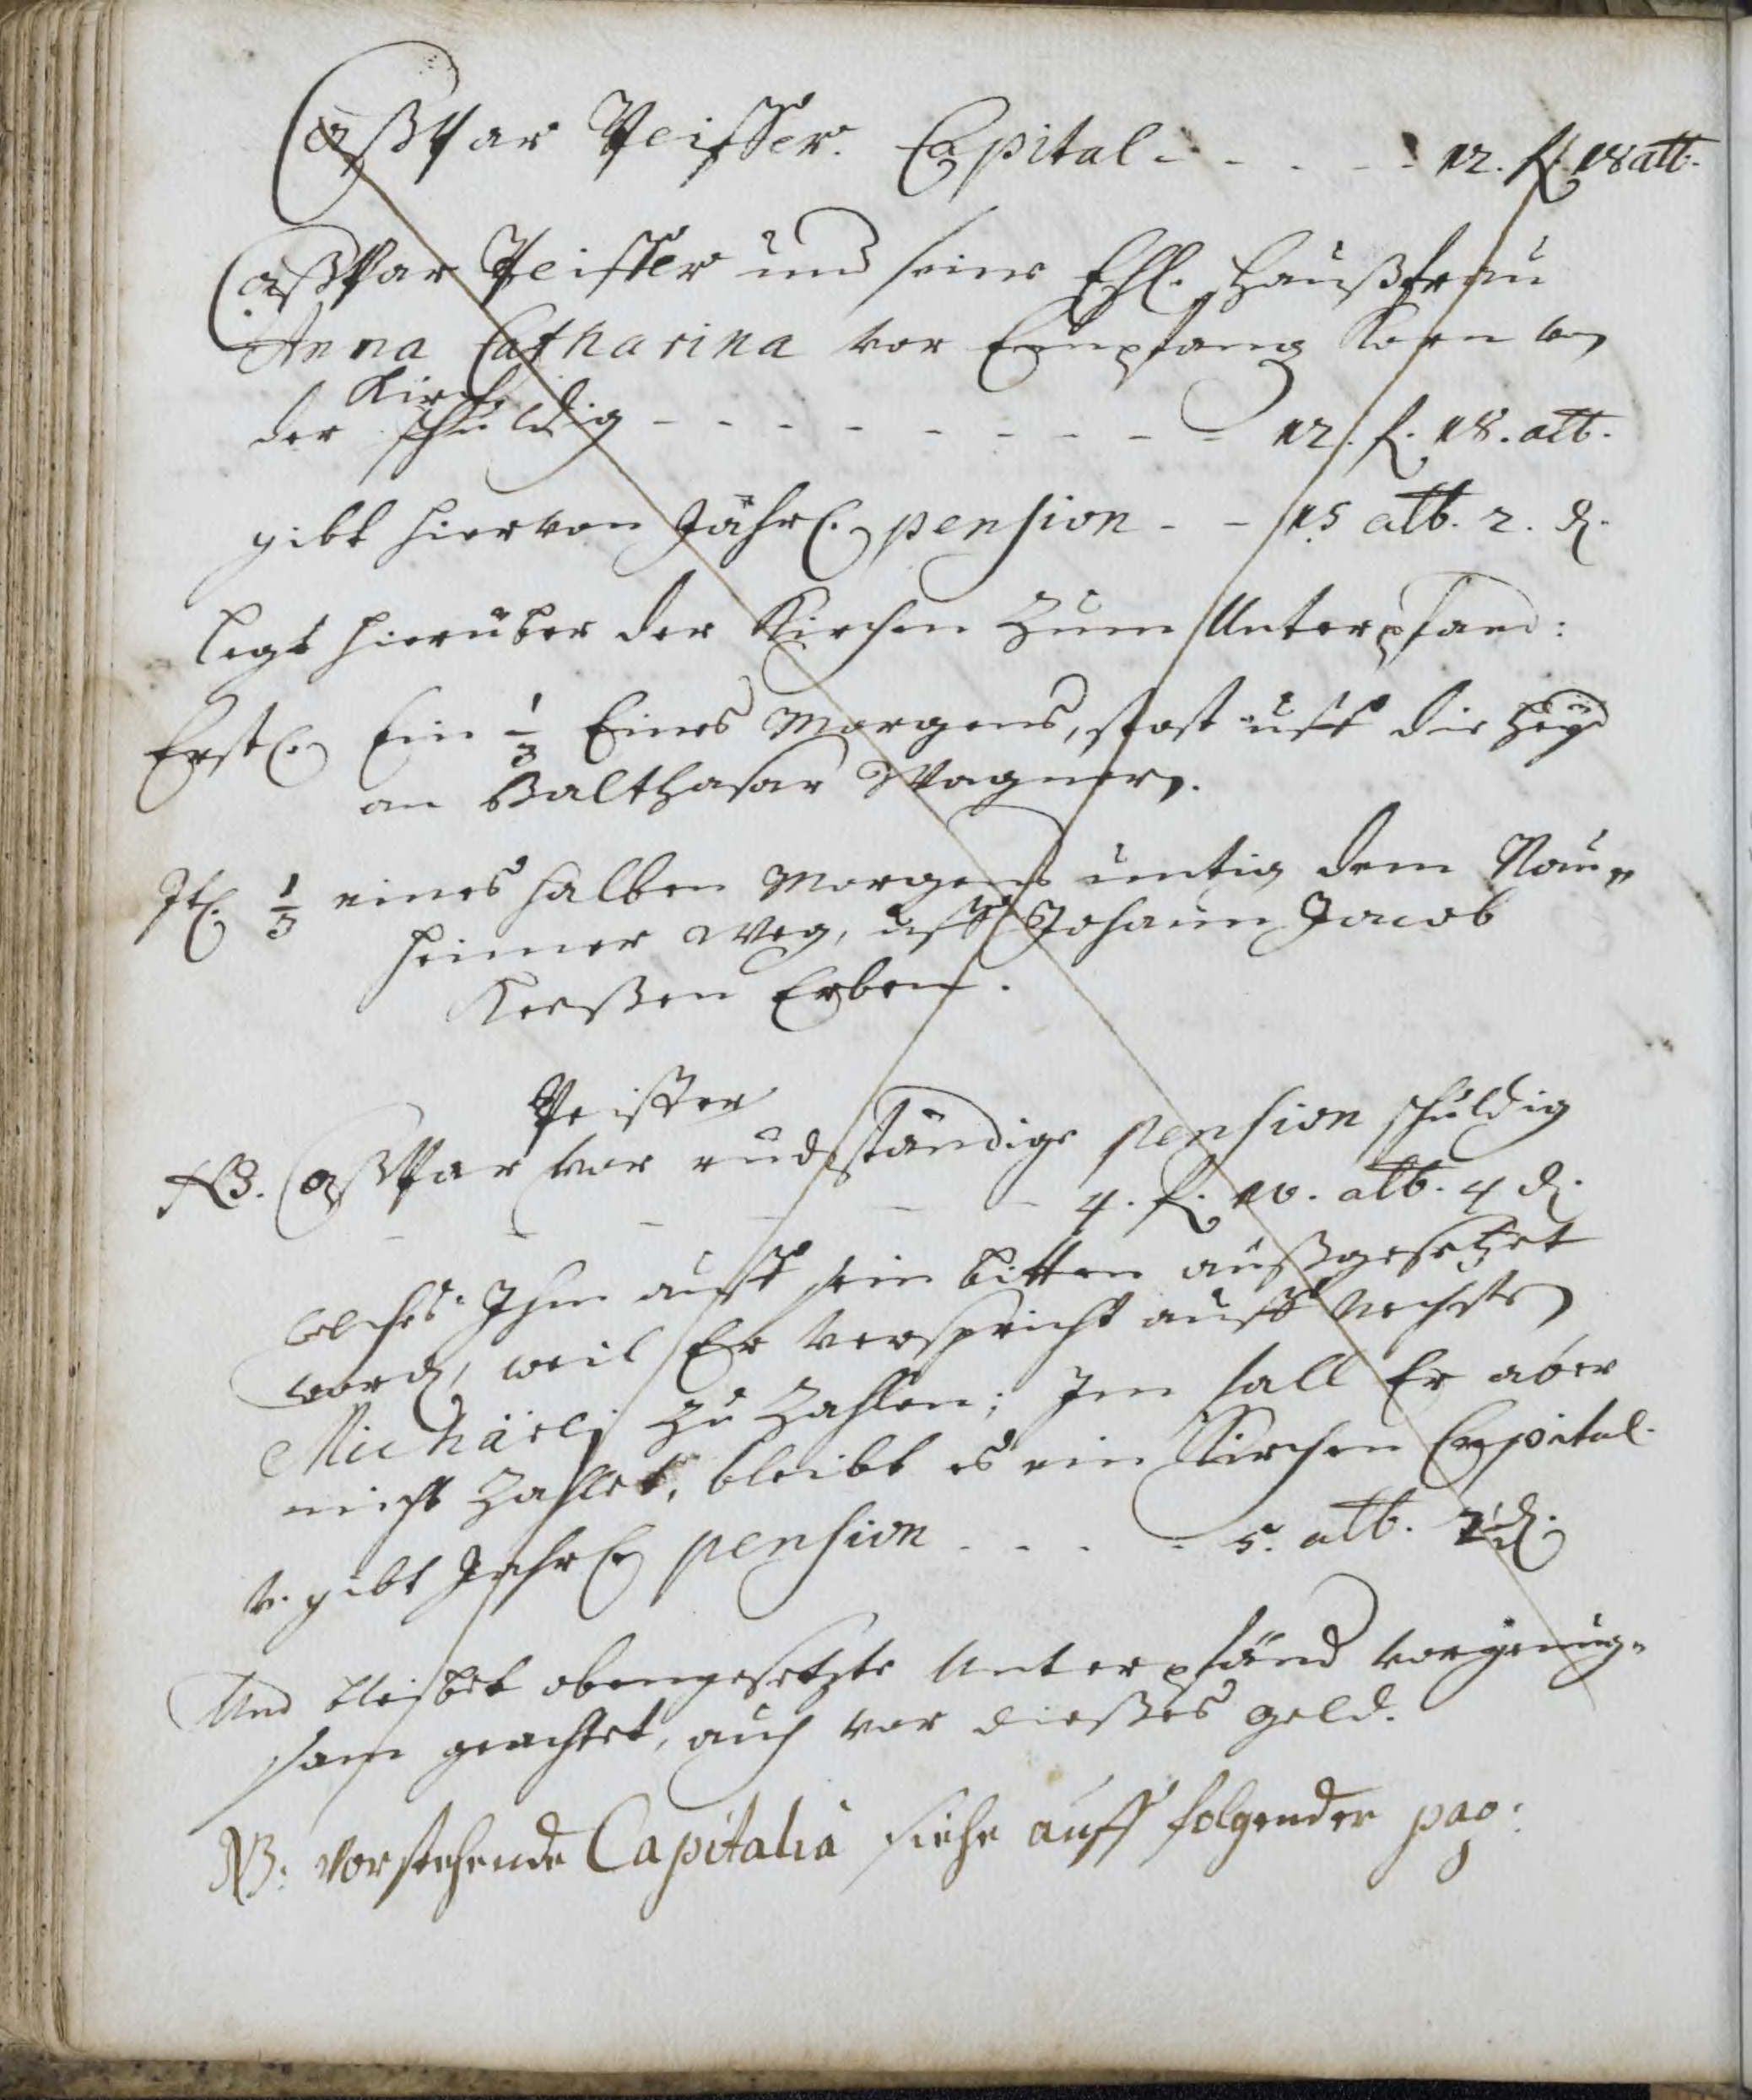 Caßpar Peisser. Capital - - - - - 12. f. 18 alb.
Caßpar Peisser und seine Ehl. Haußfrau
Anna Catharina vor Empfang Korn
Kirche
der schuldig - - - - - - - - - 12. f. 18. alb.
gibt hiervon Jährl. pension - - 15 alb. 2. d.
legt hierüber der Kirchen zum Unterpfand:
Erstl. Ein 1/3 Eines Morgens, stost uff die Heyd
an Balthasar Wagner.
It. 1/3 eines halben Morgens untig dem Nau„
heimer Weg, uff Johann Jacob
Erben.
Peisser
NB. Caßpar vor rückständige pension schuldig
- - - - - 4. f. 10. alb. 4 d.
welches Ihm auff sein bitten außgesetzet
word, weil Er verspricht auff nechste
Michäeli zu zahlen; Im fall Er aber
nicht zahlet, bleibt es ein Kirchen Capital.
v. gibt Jährl. pension - - - - 5. alb. 2 d.
Und bleibet obengesetzte Unterpfand vor genug„
sam geachtet, auch vor dießes geld.
NB: vorstehende Capitalia siehe auff folgender pag: